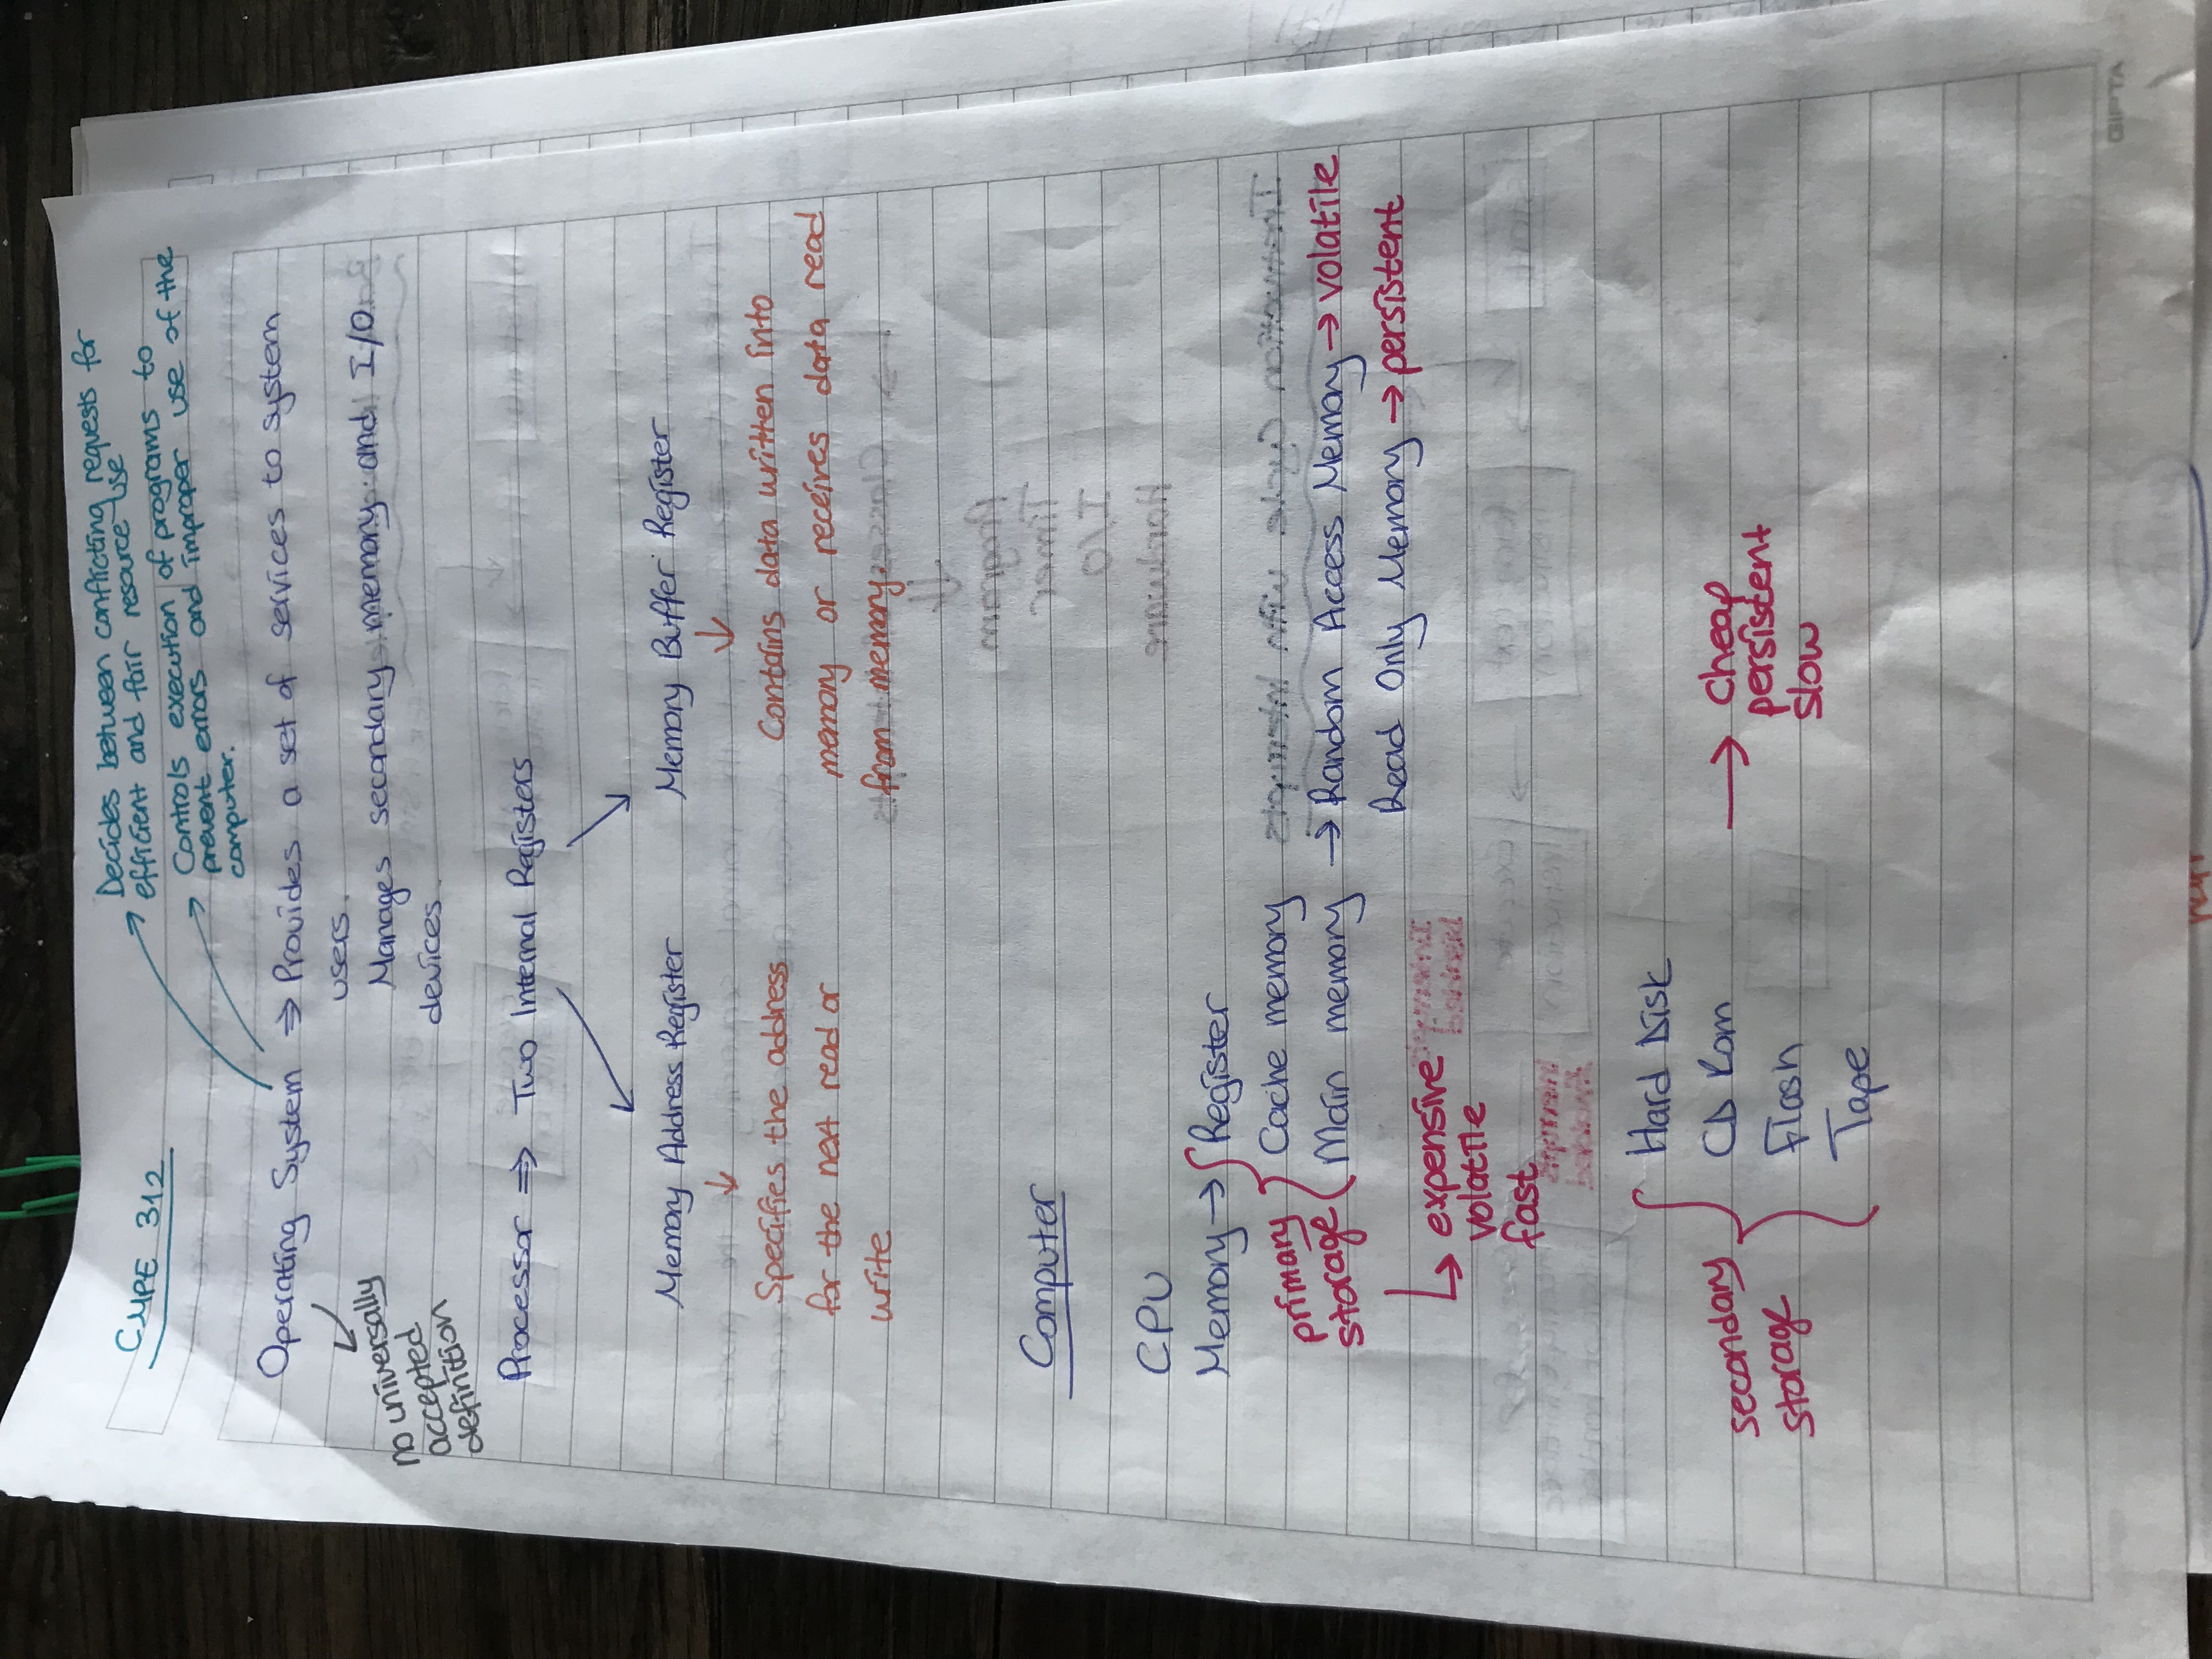 CMPE 312
Decides between conflicting requests for
efficient and fair resource use
Controls execution of programs to
prevent errors and improper use of the
computer.
Operating System ⇒ Provides a set of services to system
users.
Manages secondary memory and I/O
devices.
no universally
accepted
definition
Processor ⇒ Two Internal Registers
Memory Address Register
Memory Buffer Register
Specifies the address
for the next read or
write
Contains data written into
memory or receives data read
from memory.
Computer
CPU
Memory → Register
Cache memory
Main memory → Random Access Memory → volatile
Read Only Memory → persistent
primary
storage
expensive
volatile
fast
Hard Disk
CD Rom
Flash
Tape
secondary
storage
→ Cheap
persistent
slow
GIPTA